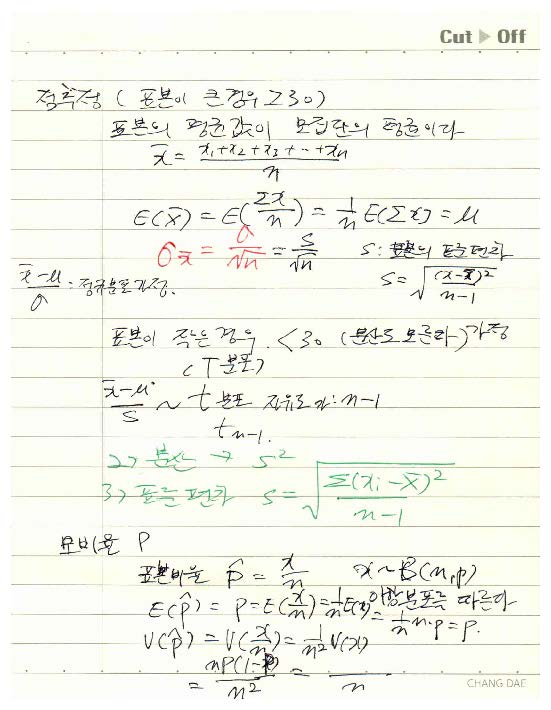 Cut ▶ Off
점추정 ( 표본이 큰경우 ≥30)
표본의 평균값이 모집단의 평균이다
x̄ = (x₁+x₂+x₃+…+xₙ)/n
E(X̄) = E(Σx/n) = 1/n E(Σx) = μ
σx̄ = σ/√n = s/√n
s: 표본의 표준편차
s = √((x-x̄)²/(n-1))
(x̄-μ)/σ : 정규분포가정.
표본이 작은경우. <30 (분산도 모른다) 가정
(T분포)
(x̄-μ)/s ~ t 분포 자유도가: n-1
tn-1.
2) 분산 → s²
3) 표준편차 s = √(Σ(xi-x̄)²/(n-1))
모비율 P
표본비율 p̂ = x/n x~B(n,p)
이항분포를 따른다
E(p̂) = p = E(x/n) = 1/n E(x) = 1/n n·p = p.
V(p̂) = V(x/n) = 1/n² V(x)
= np(1-p)/n² = /n
CHANG DAE